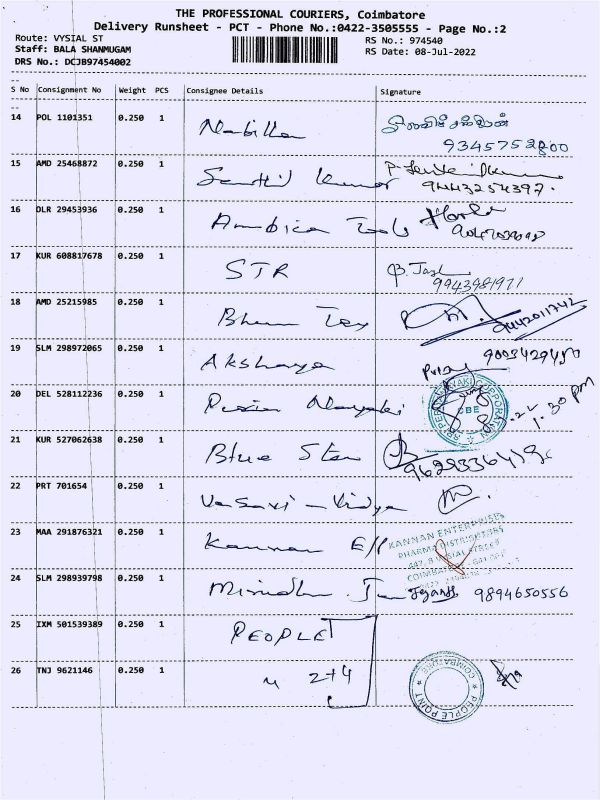 THE PROFESSIONAL COURIERS, Coimbatore
Delivery Runsheet - PCT - Phone No.:0422-3505555 - Page No.:2
Route: VYSIAL ST
RS No.: 974540
Staff: BALA SHANMUGAM
RS Date: 08-Jul-2022
DRS No.: DCJB97454002
S No Consignment No Weight PCS Consignee Details Signature
14 POL 1101351 0.250 1 Nabilla
9345752800
15 AMD 25468872 0.250 1 Senthil Kumar
9443254397.
16 DLR 29453936 0.250 1 Ambica Tools
17 KUR 608817678 0.250 1 STR
9943981971
18 AMD 25215985 0.250 1 Bhum Tex
9442011742
19 SLM 298972065 0.250 1 Akshaya
9003429450
20 DEL 528112236 0.250 1 Nayaki
CBE
1.30 pm
21 KUR 527062638 0.250 1 Blue Star
22 PRT 701654 0.250 1 Vasavi - Vidya
23 MAA 291876321 0.250 1 Kannan
KANNAN ENTERPRISES
PHARMA DISTRIBUTORS
24 SLM 298939798 0.250 1
9894650556
25 IXM 501539389 0.250 1 PEOPLE
26 TNJ 9621146 0.250 1 " 2+4
PEOPLE POINT
COIMBATORE